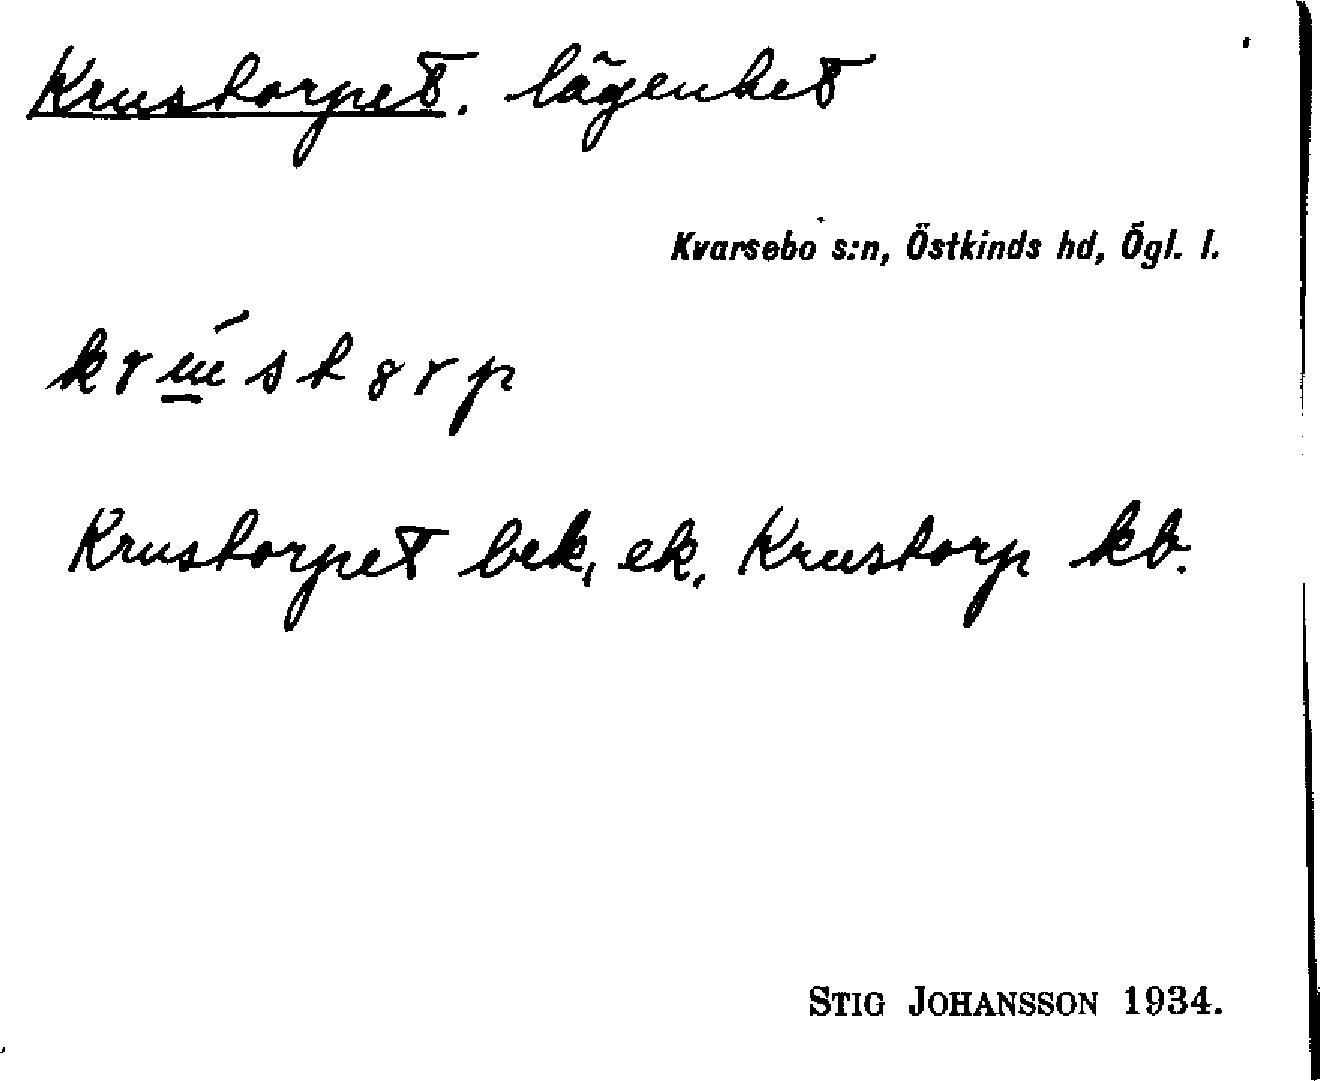 Krustorpet. lägenhet
Kvarsebo s:n, Östkinds hd, Ögl. l.
Krustorpet bek, ek, Krustorp kb.
STIG JOHANSSON 1934.